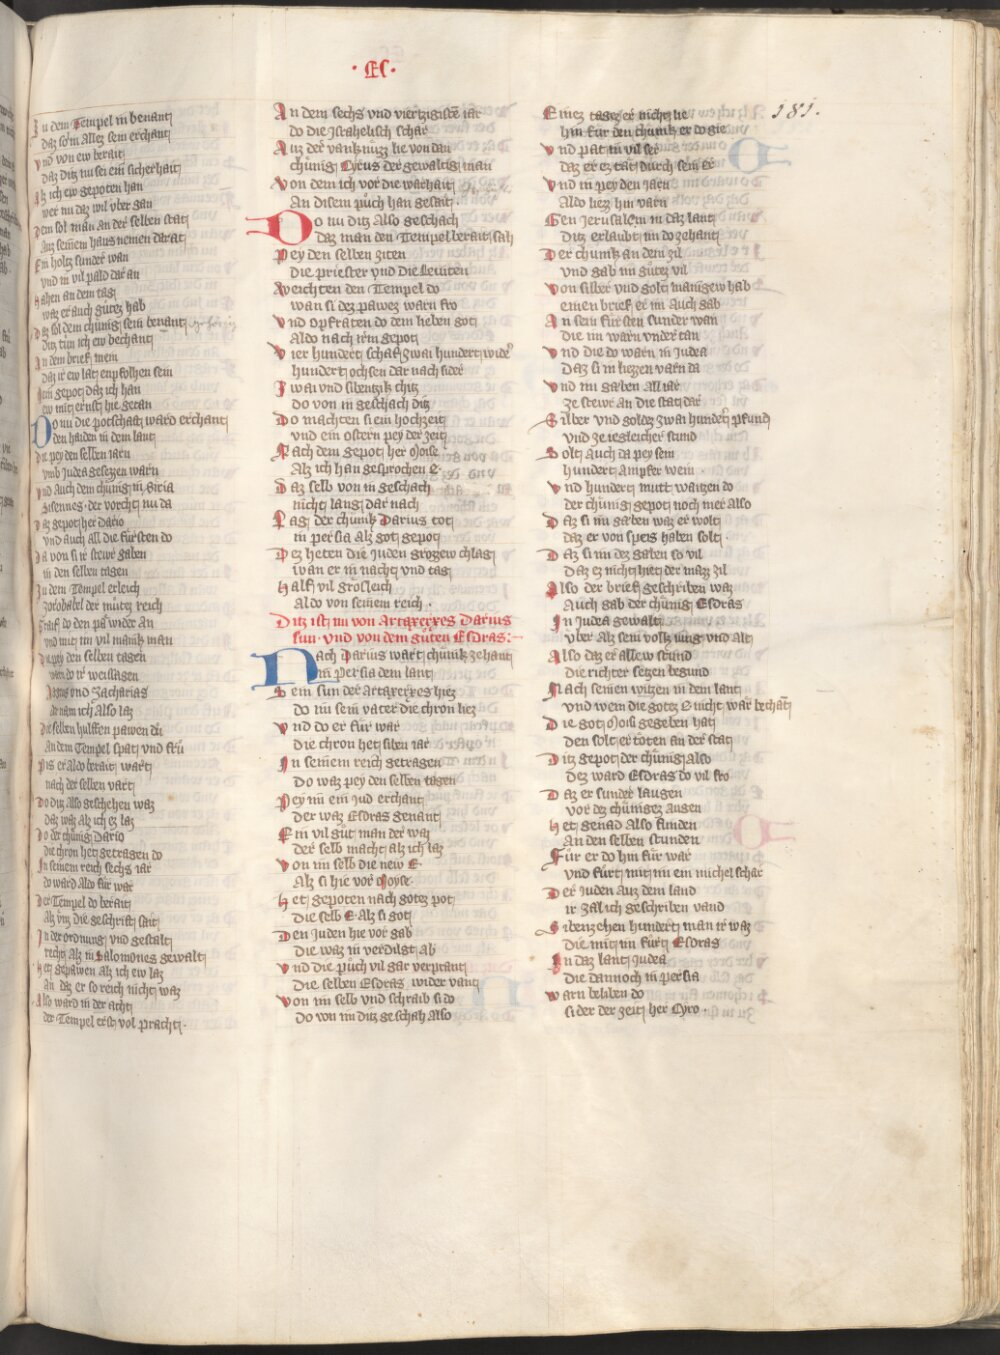 · EC ·
181.
In dem Tempel in benant
daz so in allez sein erchant
Vnd von ew berait
daz ditz nu sei ein sicherhait
Alz ich ew gepoten han
wer nu daz wil vber gan
Dem sol man an der selben stat
Auz seinem haus nemen drat
Ein holtz sunder wan
vnd in vil pald dar an
Hahen an dem tag
waz er auch gůtez hab
Daz sol dem chunig sein benant
ditz tun ich ew bechant
An dem brief mein
daz ir ew lat enpfolhen sein
Min gepot daz ich han
ew mit ernst hie getan
Do nu die potschaft ward erchant
den haiden in dem lant
Die pey den selben iarn
vmb Judea gesezzen warn
Vnd Auch dem chunig in Siria
Sisennes · der vorcht nu da
Daz gepot her Dario
vnd auch all die fürsten do
Da von si ir stewr gaben
in den selben tagen
In dem Tempel erleich
Zorobabel der mütig reich
Graif do den pa wider An
vnd mit im vil manik man
Die pey den selben tagen
warn do ir weissagen
Aggeus vnd Zacharias
Ir nam ich Also laz
Die selben hulffen pawen dü
An dem Tempel spat vnd frü
Pis er Aldo berait wart
nach der selben vart
Do ditz Also geschehen waz
daz waz Alz ich ez laz
Do der chünig Dario
die chron het getragen do
In seinem reich sechs iar
do ward Aldo für war
Der Tempel do berait
Alz vns die geschrift seit
In der ordnung vnd gestalt
recht Alz in Salomones gewalt
Het gepawen Alz ich ew laz
An daz er so reich nicht waz
Also ward in der acht
der Tempel erst vol pracht ·
An dem sechs vnd vierzigisten iar
do die Israhelisch schar
Auz der vanknüzz lie von dan
chünig Cyrus der gewaltig man
Von dem ich vor die warhait
An disem půch han gesait ·
Do nu ditz Also geschach
Daz man den Tempel berait sach
Pey den selben ziten
die priester vnd die Leuiten
Weichten den Tempel do
wan si dez pawez warn fro
Vnd opfraten do dem lieben got
Aldo nach irm gepot
Vier hundert schaf zwai hundert wider
hundert ochsen dar nach sider
Zwai vnd sibentzik chitz
do von in geschach ditz
Do machten si ein hochzeit
vnd ein ostern pey der zeit
Nach dem gepot her Moise
Alz ich han gesprochen E ·
Daz selb von in geschach
nicht lang dar nach
Lag der chünik Darius tot
in persia Alz got gepot
Dez heten die Juden grozew chlag
wan er in nacht vnd tag
Half vil grösleich
Aldo von seinem reich ·
Ditz ist nu von Artaxerxes Darius
sun · vnd von dem güten Esdras:
Nach Darius wart chünik zehant
in persia dem lant
Sein sun der Artaxerxes hiez
do im sein vater die chron liez
Vnd do er für war
die chron het siben iar
In seinem reich getragen
Do waz pey den selben tagen
Pey im ein Jud erchant
Der waz Esdras genant
Ein vil güt man der waz
der selb macht alz ich laz
Von im selb die new E
Alz si hie vor Moyse
Het gepoten nach gotez pot
die selb E Alz si got
Den Juden hie vor gab
die waz in verdilgt ab
Vnd die půch vil gar verprant
Die selben Esdras wider vant
Von im selb vnd schraib si do
Do von im ditz geschah Also
Einez tagez er nicht lie
hin für den chünik er do gie
Vnd pat in vil ser
daz er ez tät durch sein er
Vnd in pey den iarn
Aldo liez hin varn
Gen Jerusalem in daz lant
Ditz erlaubt im do zehant
Der chunik an dem zil
vnd gab im gůtez vil
Von silber vnd golt manigew hab
einen brief er im Auch gab
An sein fürsten sunder wan
die im warn vnder tan
Vnd die do warn in Judea
Daz si in liezzen varn da
Vnd im gäben all iar
ze stewr an die stat dar
Silber vnd goldez zwai hundert pfund
vnd ze iegleicher stund
Solt Auch da pey sein
hundert Ampfer wein ·
Vnd hundert mutt waitzen do
der chünig gepot noch mer Also
Daz si im gäben waz er wolt
daz er von speis haben solt
Daz si im dez gaben so vil
Daz ez nicht hiet der maz zil
Also der brief geschriben waz
Auch gab der chünig Esdras
In Judea gewalt
vber Alz sein volk iung vnd Alt
Also daz er allew stund
die richter setzen begund
Nach seinen witzen in dem lant
vnd wem die gotez E nicht wär bechant
Die got Moisi gegeben hat
den solt er töten an der stat
Ditz gepot der chünig Also
Dez ward Esdras do vil fro
Daz er sunder laugen
vor dez chünigez augen
Het genad Also funden
An den selben stunden
Für er do hin für war
vnd fürt mit im ein michel schar
Der Juden auz dem land
ir zal ich geschriben vand
Sibenzehen hundert man ir waz
die mit im fürt Esdras
In daz lant Judea
die dannoch in persia
Warn beliben do
sider der zeit her Cyro ·